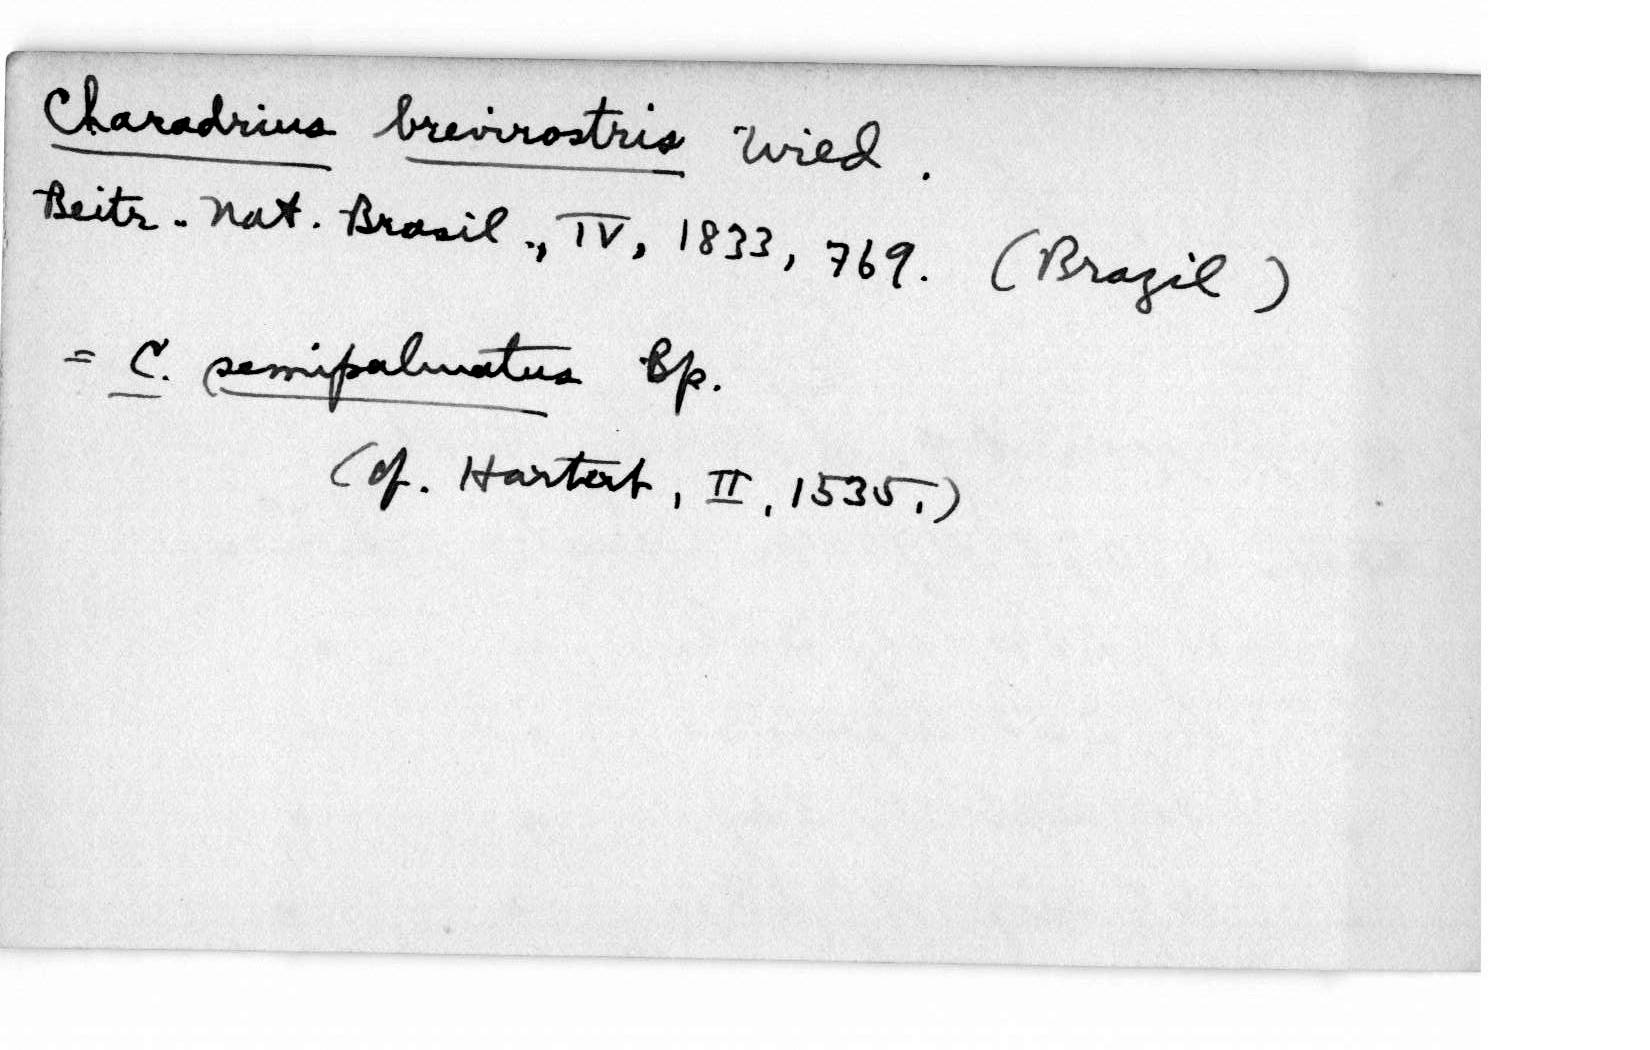 Charadrius brevirostris Wied.
Beitr. Nat. Brasil., IV, 1833, 769. (Brazil)
= C. semipalmatus Bp.
(cf. Hartert, II, 1535.)